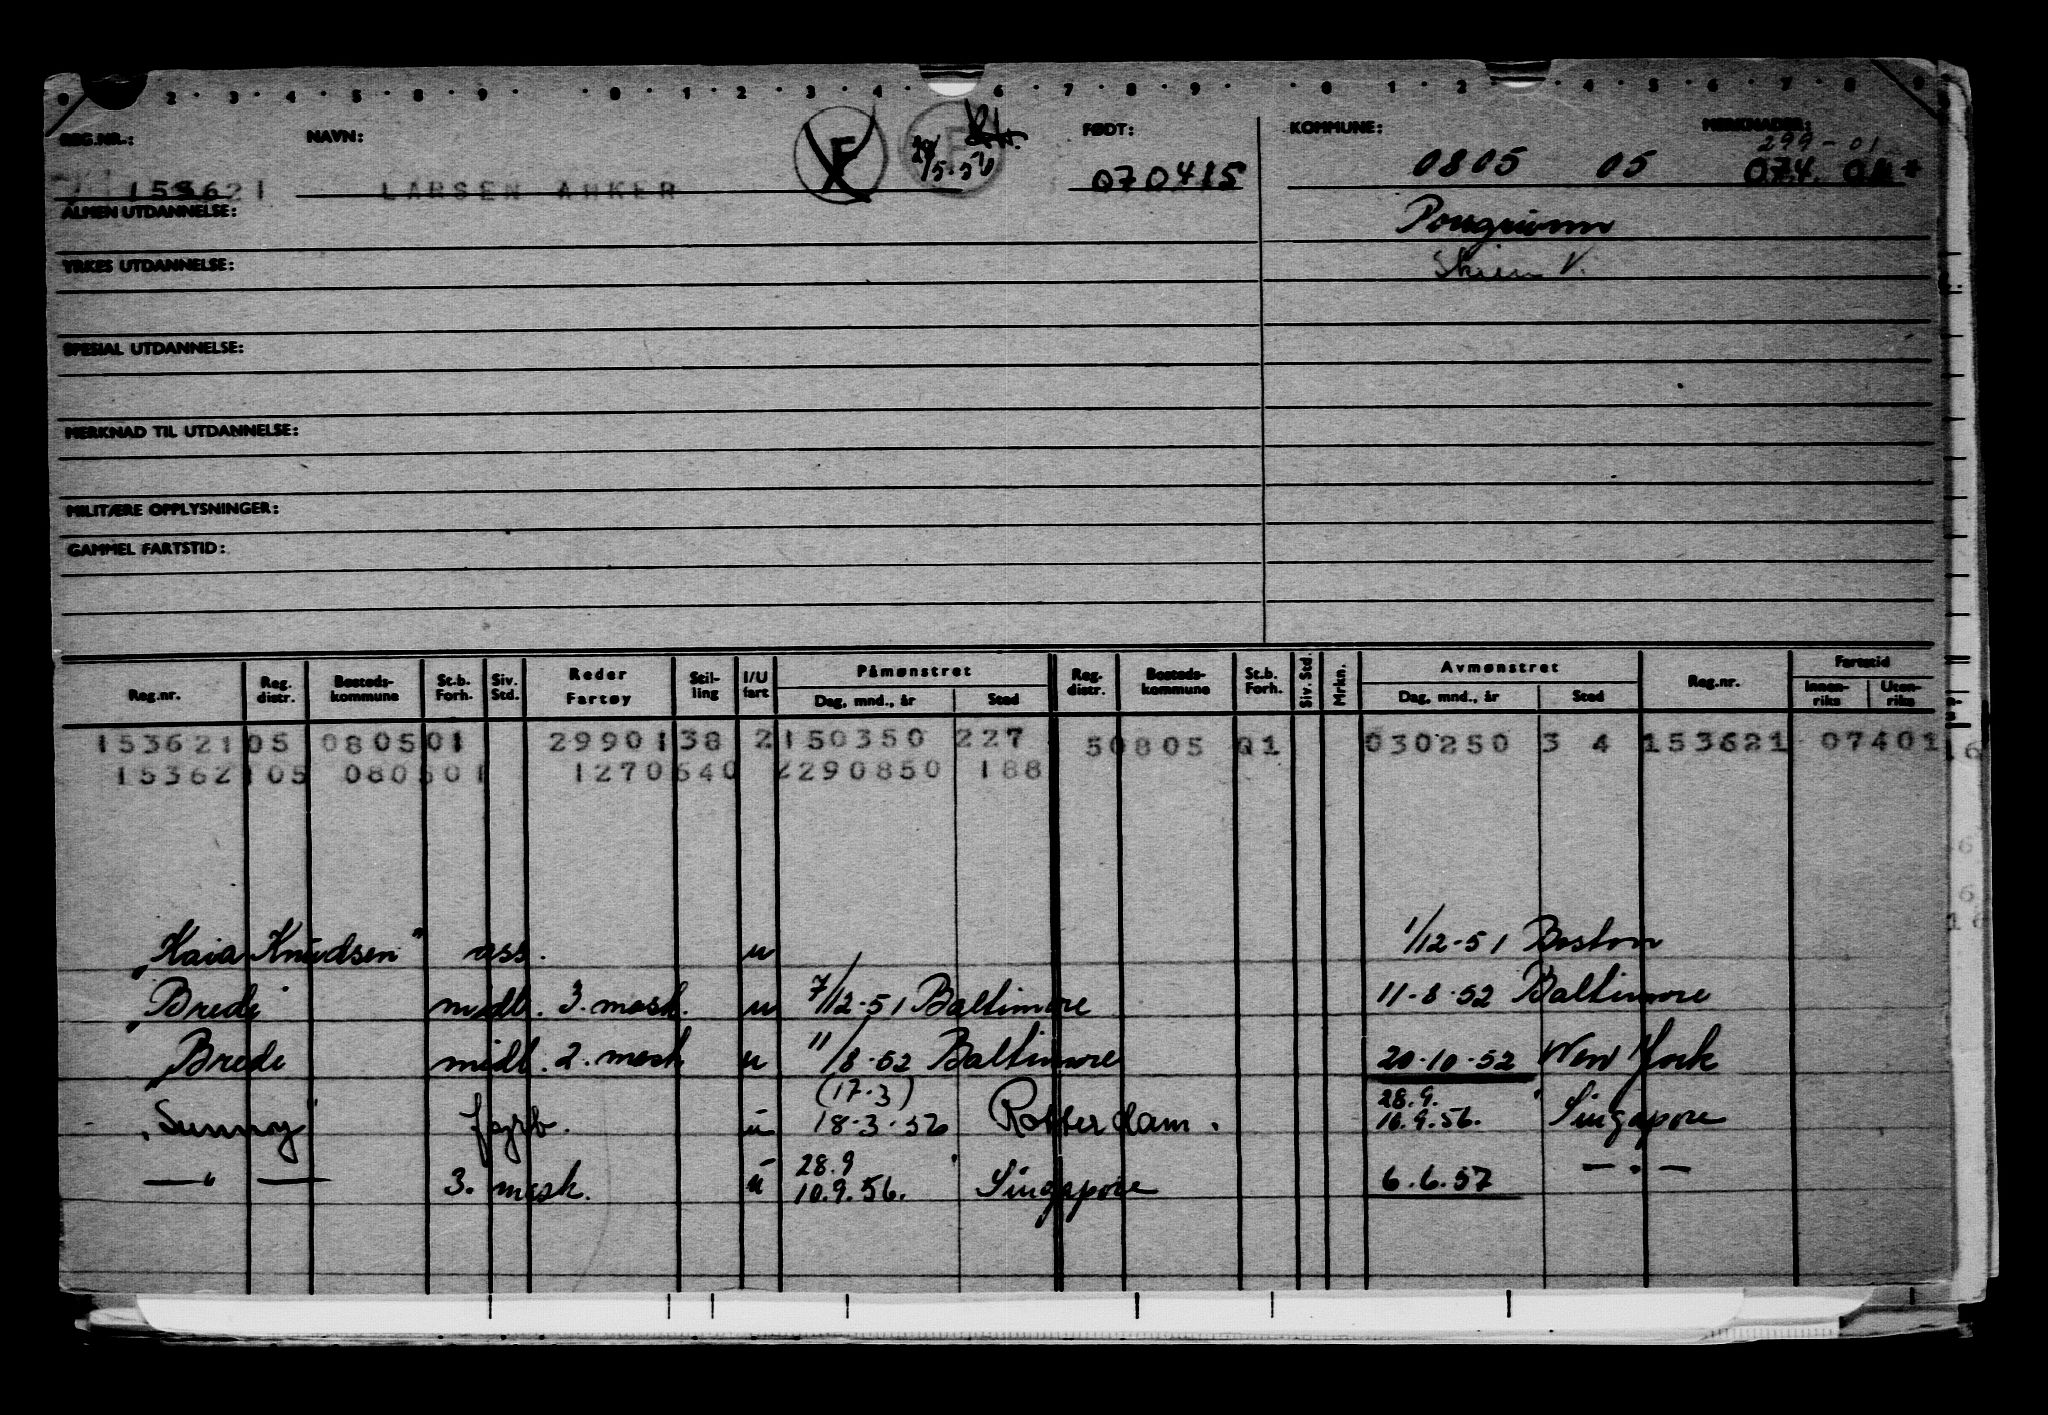 0 2 3 4 5 8 9 0 1 2 3 4 6 7 8 9 0 1 2 3 4 5 6 7 8 9
REG.NR.: NAVN: FØDT: KOMMUNE: MERKNADER:
299-01
153621 LARSEN ANKER F F 070415 0805 05 074.01
ALMEN UTDANNELSE: Porsgrunn
YRKES UTDANNELSE: Skien V.
SPESIAL UTDANNELSE:
MERKNAD TIL UTDANNELSE:
MILITÆRE OPPLYSNINGER:
GAMMEL FARTSTID:
Reg.nr. Reg. distr. Bosteds-kommune St.b. Forh. Siv. Std. Reder Fartøy Stil-ling I/U fart Påmønstret Dag, mnd., år Sted Reg. distr. Bosteds-kommune St.b. Forh. Siv. Std. Mrkn. Avmønstret Dag, mnd., år Sted Reg.nr. Fartstid Innen-riks Uten-riks
153621 05 0805 01 29901 38 2 150350 227 5 0805 01 030250 3 4 153621 07401
153621 05 0805 01 12706 40 2 290850 188
"Kaia Knudsen" ass. u 1/12-51 Boston
"Bredi" midl. 3. mask. u 7/12-51 Baltimore 11-8-52 Baltimore
"Bredi midl. 2. mask u 11/8-52 Baltimore 20-10-52 New York
(17-3) 28.9.
"Sunny" fyrb. u 18-3-56 Rotterdam. 10.9.56. Singapore
28.9
—"— 3. mask. u 10.9.56. Singapore 6.6.57 — " —